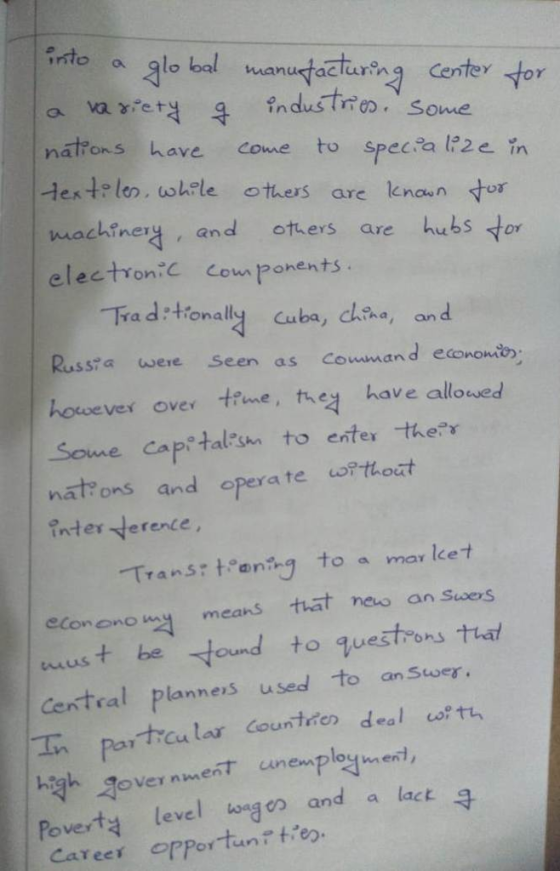 into a global manufacturing center for
a variety of industries. Some
nations have come to specialize in
textiles. while others are known for
machinery, and others are hubs for
electronic components.
Traditionally cuba, china, and
Russia were seen as command economies;
however over time, they have allowed
Some capitalism to enter their
nations and operate without
interference,
Transitioning to a market
econonomy means that new answers
must be found to questions that
central planners used to answer.
In particular countries deal with
high government unemployment,
Poverty level wages and a lack of
Career opportunities.